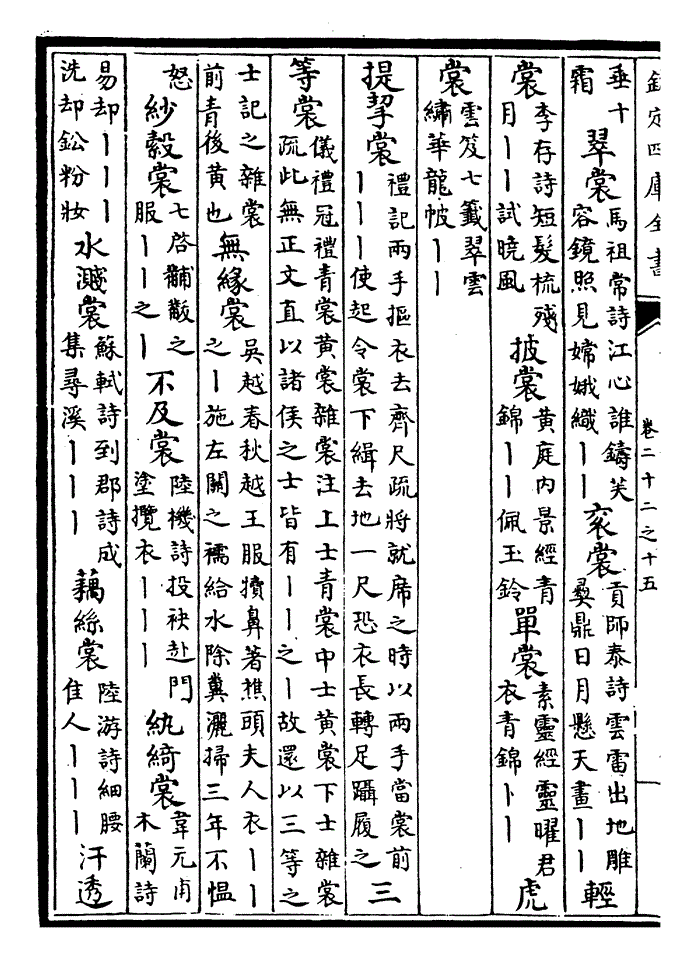 欽定四庫全書
卷二十二之十五
垂十
霜
翠裳
馬祖常詩江心誰鑄芙
容鏡照見嫦娥織丨丨
衮裳
貢師泰詩雲雷出地雕
彝鼎日月懸天畫丨丨
輕
裳
李存詩短髮梳殘
月丨丨試曉風
披裳
黄庭内景經青
錦丨丨佩玉鈴
單裳
素靈經靈曜君
衣青錦丨丨
虎
裳
雲笈七籤翠雲
繡華龍帔丨丨
提挈裳
禮記兩手摳衣去齊尺疏將就席之時以兩手當裳前
丨丨丨使起令裳下緝去地一尺恐衣長轉足躡履之
三
等裳
儀禮冠禮青裳黄裳雜裳注上士青裳中士黄裳下士雜裳
疏此無正文直以諸侯之士皆有丨丨之丨故還以三等之
士記之雜裳
前青後黄也
無緣裳
吳越春秋越王服犢鼻著樵頭夫人衣丨丨
之丨施左關之襦給水除糞灑掃三年不愠
怒
紗縠裳
七啓黼黻之
服丨丨之丨
不及裳
陸機詩投袂赴門
塗攬衣丨丨丨
紈綺裳
韋元甫
木蘭詩
易却丨丨丨
洗却鉛粉妝
水濺裳
蘇軾詩到郡詩成
集尋溪丨丨丨
藕絲裳
陸游詩細腰
佳人丨丨丨
汗透